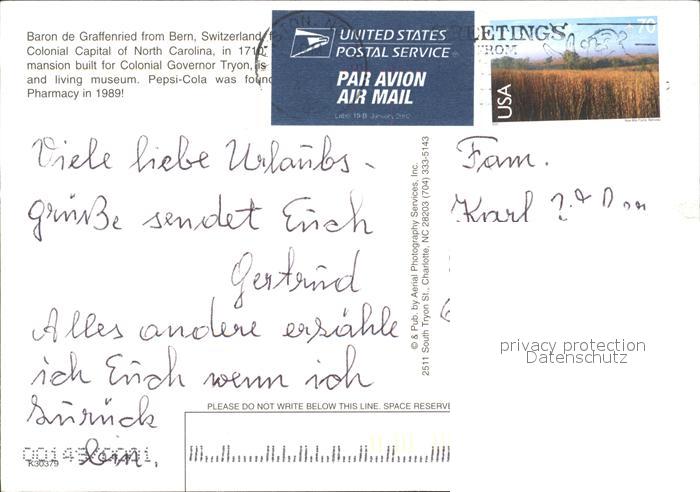 Baron de Graffenried from Bern, Switzerland,
Colonial Capital of North Carolina, in 1710.
mansion built for Colonial Governor Tryon, is
and living museum. Pepsi-Cola was found
Pharmacy in 1989!
UNITED STATES
POSTAL SERVICE
PAR AVION
AIR MAIL
Label 19-B January 2002
GREETINGS
FROM
70
USA
Viele liebe Urlaubs-
grüße sendet Euch
Gertrud
Alles andere erzähle
ich Euch wenn ich
zurück
bin.
© & Pub. by Aerial Photography Services, Inc.
2511 South Tryon St., Charlotte, NC 28203 (704) 333-5143
Fam.
Karl
privacy protection
Datenschutz
PLEASE DO NOT WRITE BELOW THIS LINE. SPACE RESERVE
K30379